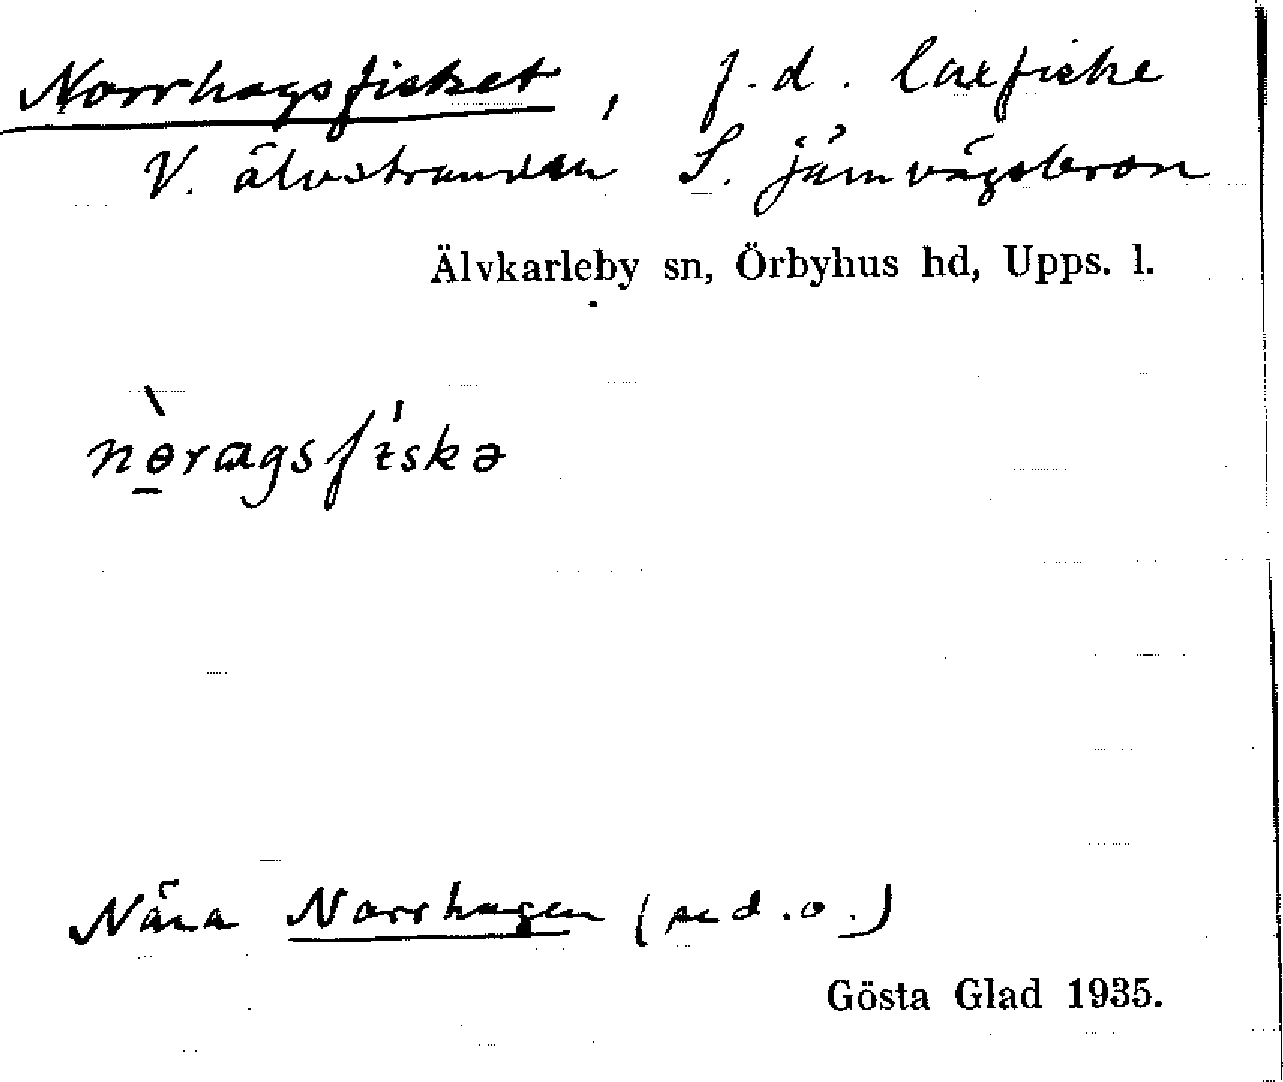 Norrhagsfisket, f.d. laxfiske
V. älvstranden S. järnvägsbron
Älvkarleby sn, Örbyhus hd, Upps. l.
nɵ̠̀ragsfɪ́skə
Nära Norrhagen (se d.o.)
Gösta Glad 1935.